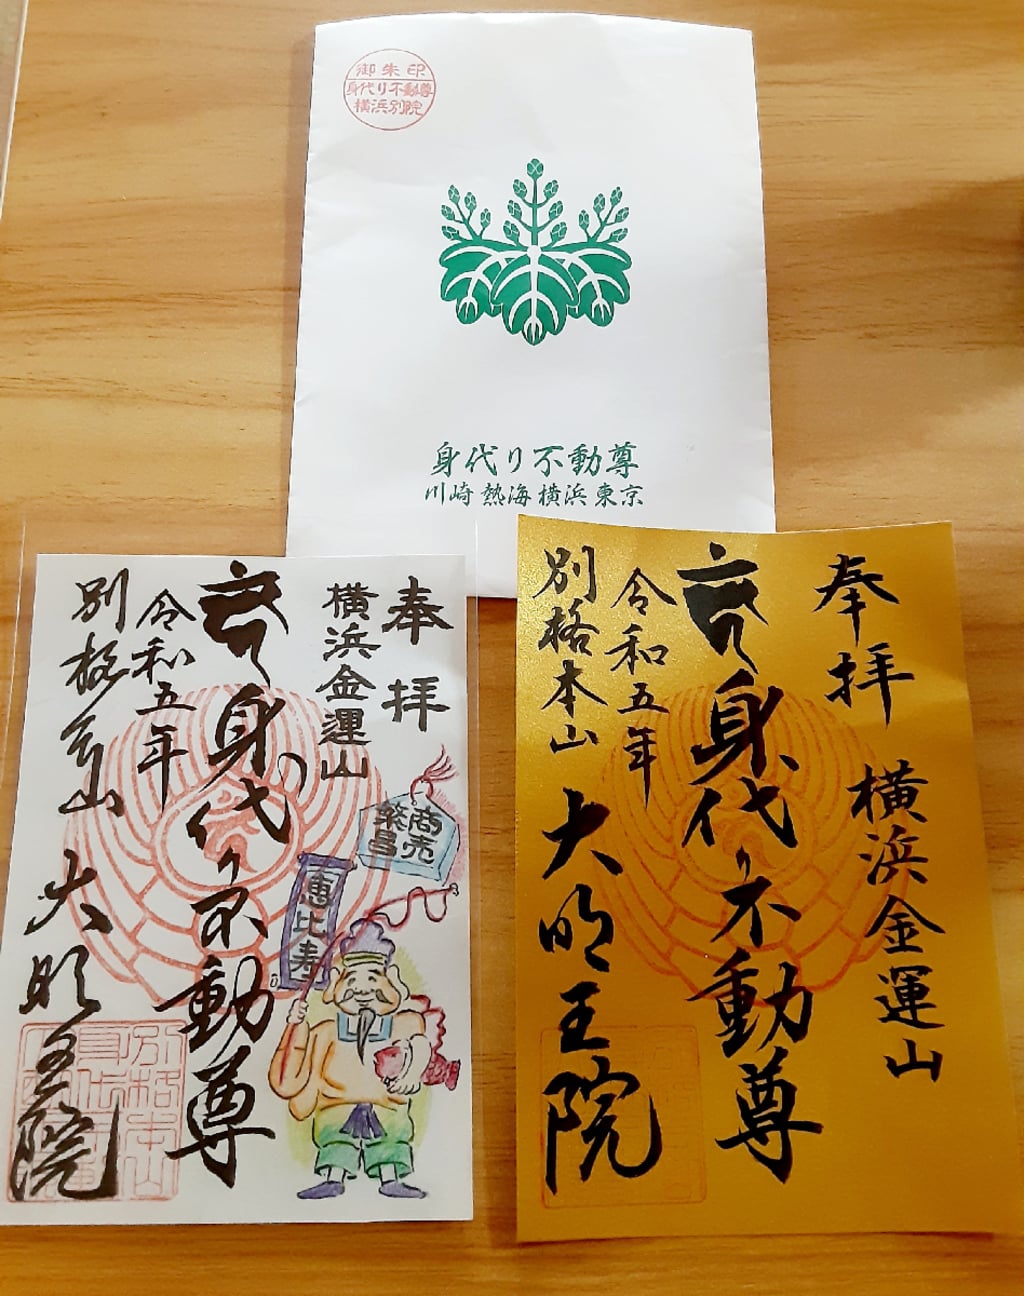 御朱印
身代り不動尊
横浜別院
身代り不動尊
川崎 熱海 横浜 東京
奉拝
横浜金運山
身代り不動尊
令和五年
別格本山 大明王院
商売
繁昌
恵比寿
奉拝
横浜金運山
身代り不動尊
令和五年
別格本山 大明王院